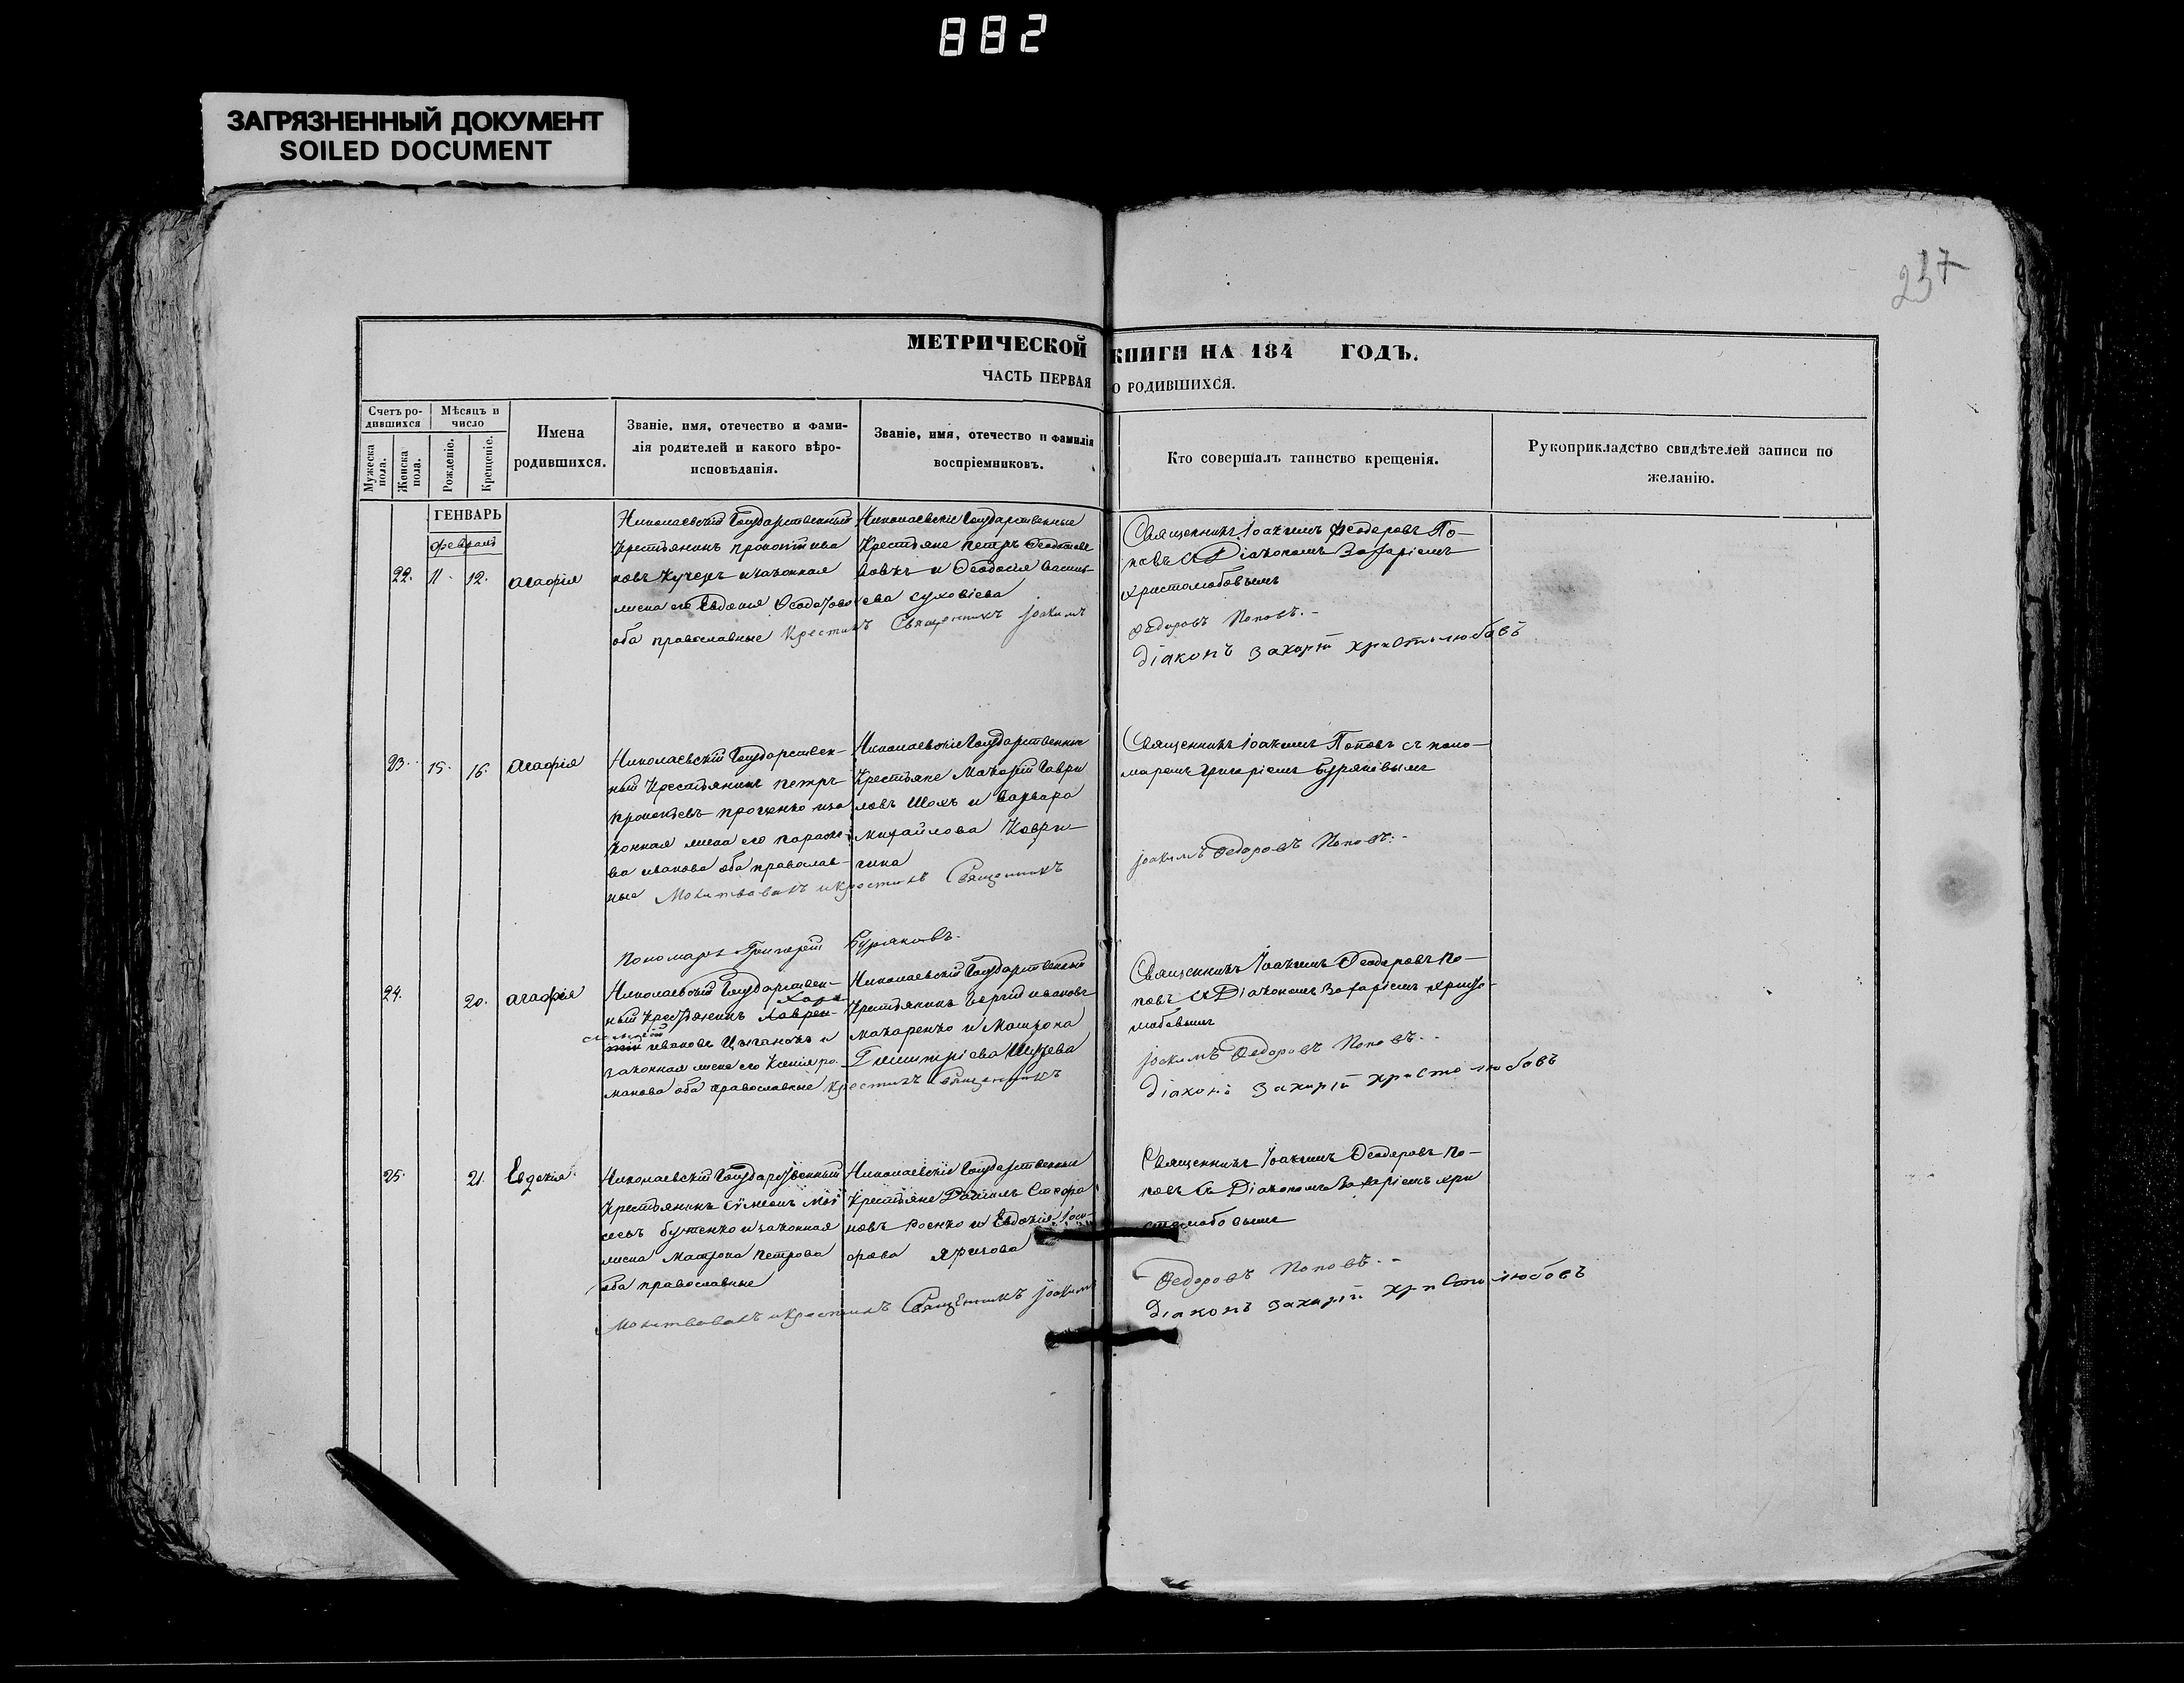 882
ЗАГРЯЗНЕННЫЙ ДОКУМЕНТ
SOILED DOCUMENT
237
МЕТРИЧЕСКОЙ КНИГИ НА 184 ГОДЪ.
ЧАСТЬ ПЕРВАЯ О РОДИВШИХСЯ.
Счетъ ро-
дившихся
Мужеска пола.
Женска пола.
Мѣсяцъ и
число
Рожденіе.
Крещеніе.
Имена
родившихся.
Званіе, имя, отечество и фами-
лія родителей и какого вѣро-
исповѣданія.
Званіе, имя, отечество и фамилія
воспріемниковъ.
Кто совершалъ таинство крещенія.
Рукоприкладство свидѣтелей записи по
желанію.
ГЕНВАРЬ
февраль
22. 11. 12. Агафія
Николаевскій Государственный
Крестьянинъ прокопій ива
новъ Кучеръ и законная
жена его Евдокія Феодотова
оба православные
Николаевскіе Государственные
Крестьяне Петръ
и Феодосія василь
ева суховіева
Крестилъ Священникъ Іоакимъ
Священникъ Іоакимъ Феодоровъ По-
повъ съ Діакономъ Захаріемъ
христолюбовымъ
Федоровъ Поповъ.-
Діаконъ Захарій Христолюбовъ
23. 15. 16. Агафія
Николаевскій Государствен-
ный Крестьянинъ Петръ
прокопіевъ проценко и за
конная жена его параске
ва иванова оба православ-
ные
Николаевскіе Государственные
Крестьяне Макарій Гаври
ловъ Шохъ и Варвара
Михайлова Коври
гина
Молитвовалъ и крестилъ Священникъ
Священникъ Іоакимъ Поповъ съ поно-
маремъ Григоріемъ Буряковымъ
Іоакимъ Федоровъ Поповъ.-
Пономарь Григорій Буряковъ.
24. 20. Агафія
Николаевскій Государствен-
Хара
ный Крестьянинъ Лаврен-
иванова Цыганокъ и
законная жена его Ксенія ро-
манова оба православные
Николаевскій Государственный
Крестьянинъ Сергій ивановъ
Макаренко и Матрона
Димитріева
Крестилъ Священникъ
Священникъ Іоакимъ Феодоровъ По-
повъ съ Діакономъ Захаріемъ христо-
любовымъ
Іоакимъ Федоровъ Поповъ.-
Діаконъ Захарій Христолюбовъ
25. 21. Евдокія
Николаевскій Государственный
Крестьянинъ Сѵмеонъ Мои
сеевъ бутенко и законная
жена Матрона Петрова
оба православные
Николаевскіе Государственные
Крестьяне Даніилъ Стефа
новъ и Евдокія
Молитвовалъ и крестилъ Священникъ Іоакимъ
Священникъ Іоакимъ Феодоровъ По-
повъ съ Діакономъ Захаріемъ хри
столюбовымъ
Федоровъ Поповъ.-
Діаконъ Захарій Христолюбовъ